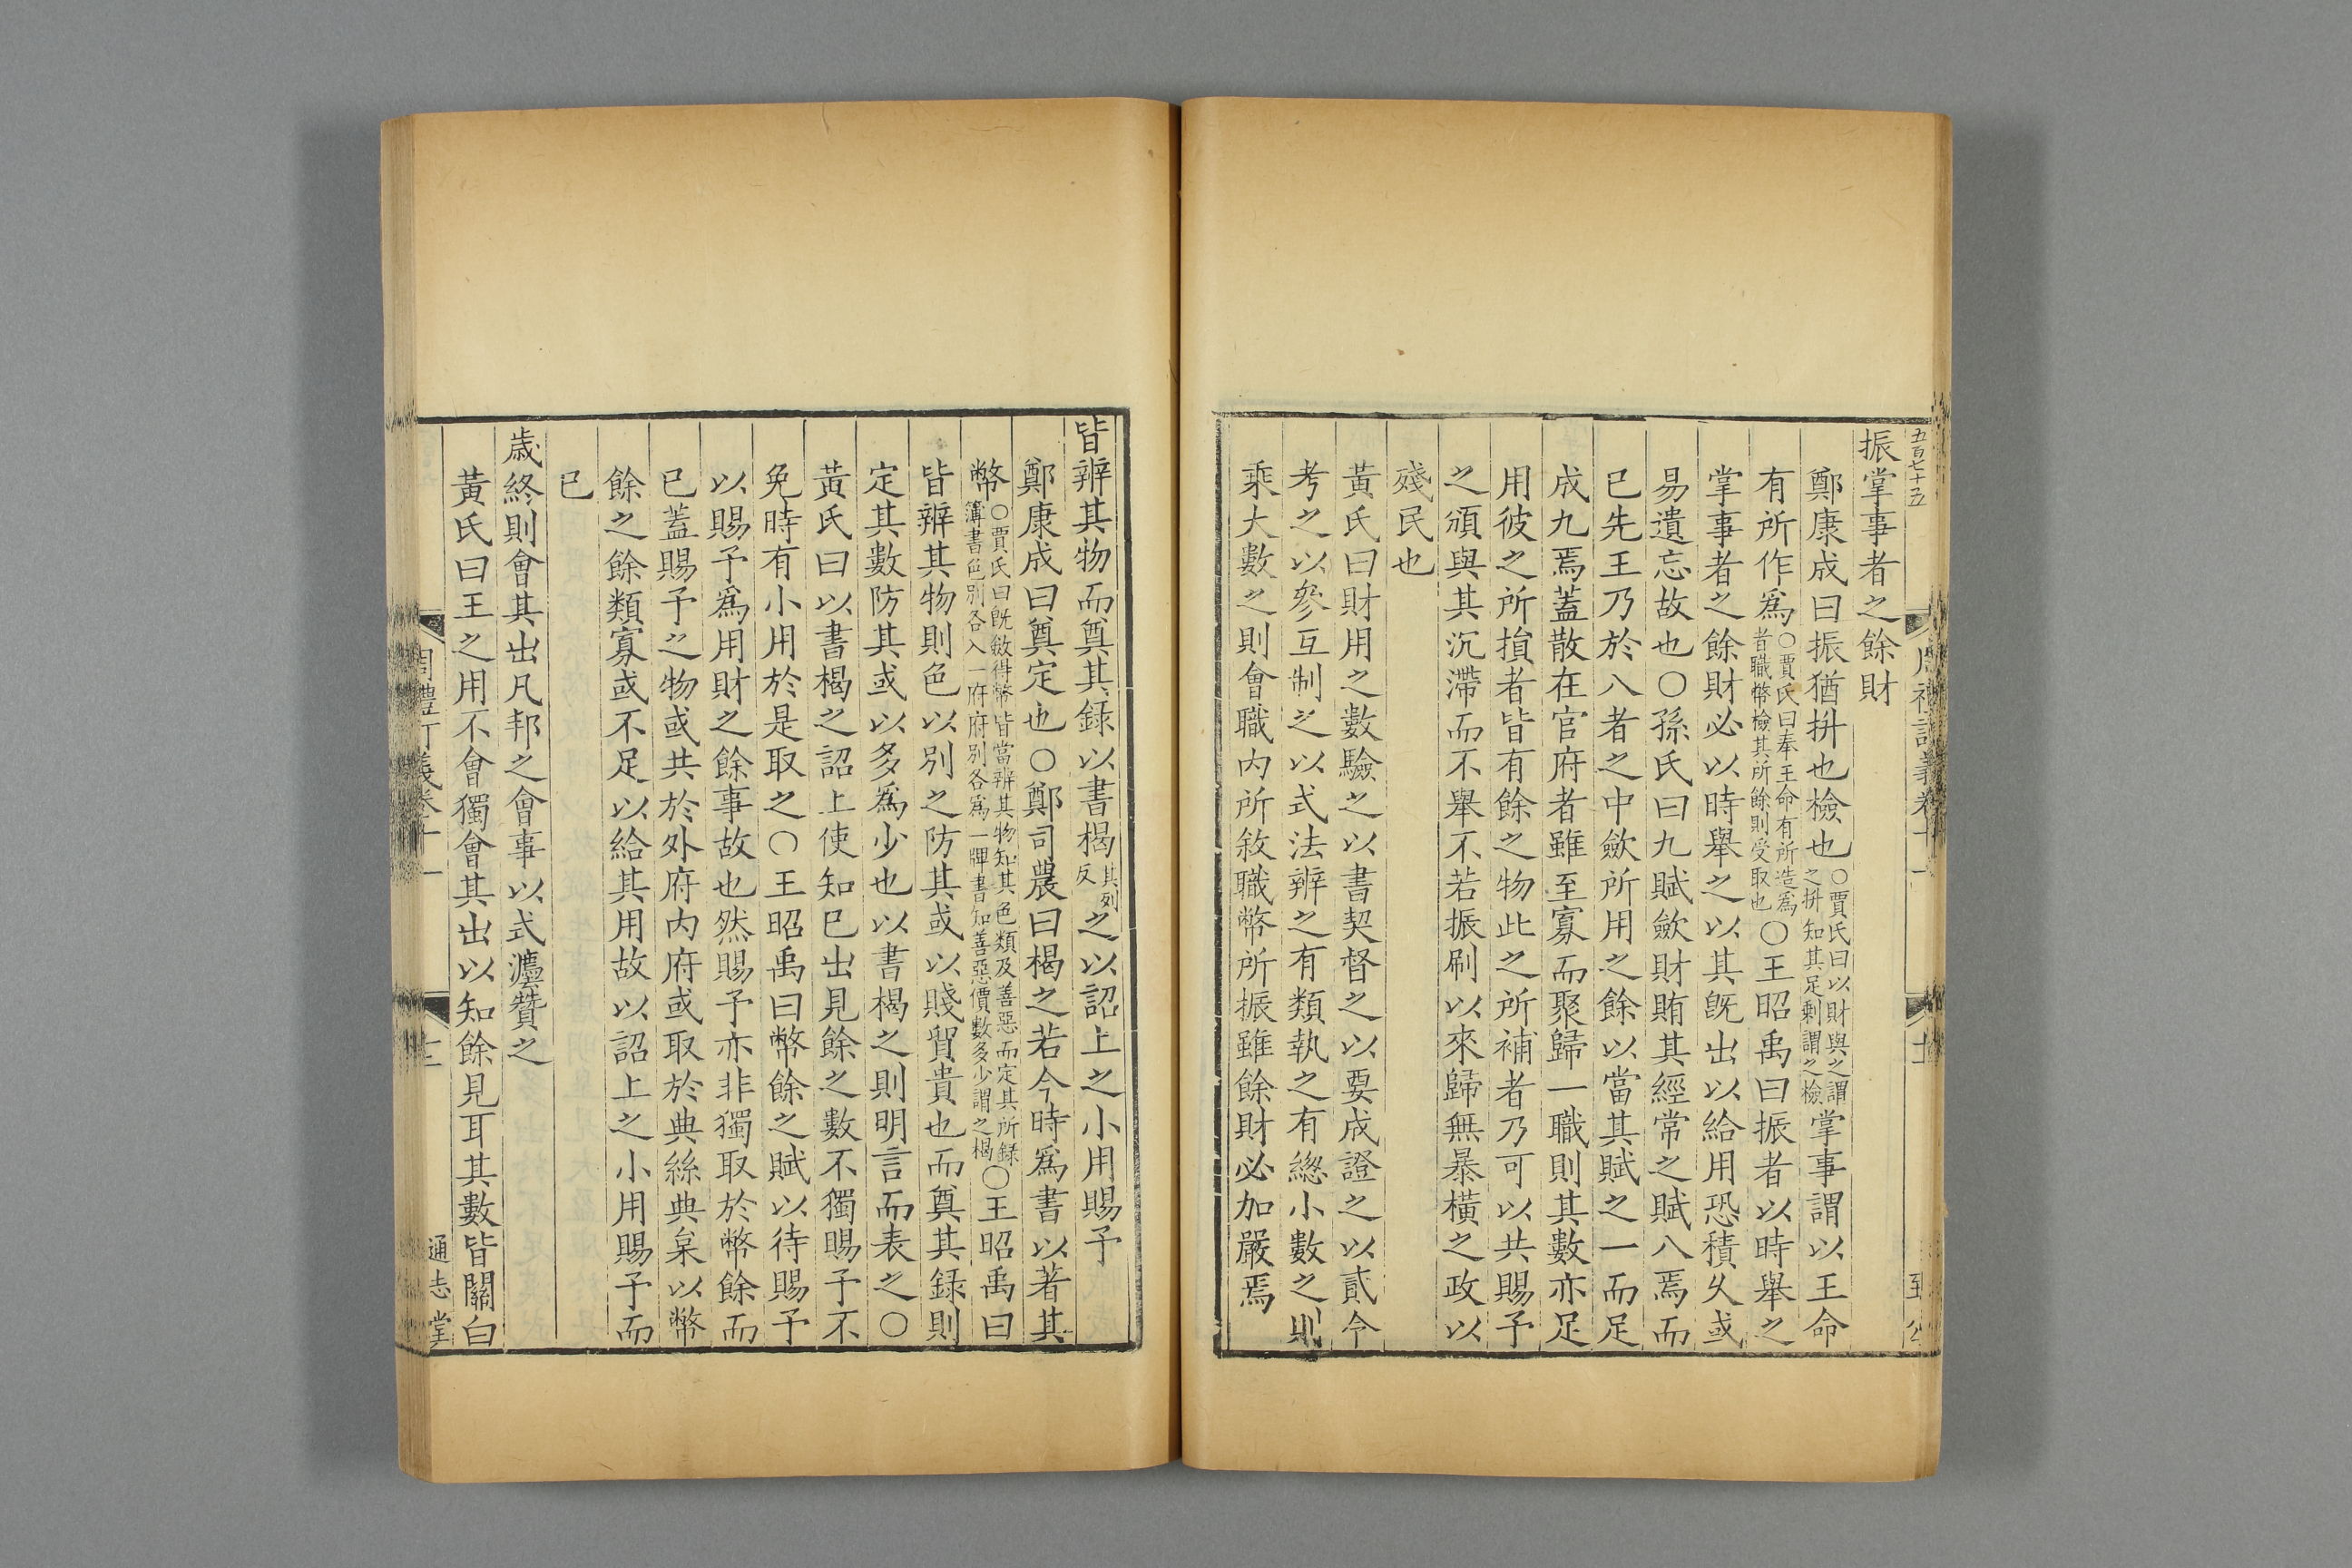 五百七十五
振掌事者之餘財
鄭康成曰振猶抍也檢也○賈氏曰以財與之謂之抍知其足剩謂之檢掌事謂以王命
有所作爲○賈氏曰奉王命有所造爲者職幣檢其所餘則受取也○王昭禹曰振者以時舉之
掌事者之餘財必以時舉之以其旣出以給用恐積久或
易遺忘故也○孫氏曰九賦斂財賄其經常之賦八焉而
已先王乃於八者之中歛所用之餘以當其賦之一而足
成九焉蓋散在官府者雖至寡而聚歸一職則其數亦足
用彼之所損者皆有餘之物此之所補者乃可以共賜予
之頒與其沉滯而不舉不若振刷以來歸無暴橫之政以
殘民也
黃氏曰財用之數驗之以書契督之以要成證之以貳令
考之以參互制之以式法辨之有類執之有緫小數之則
乘大數之則會職内所敘職幣所振雖餘財必加嚴焉
皆辨其物而奠其録以書楬其列反之以詔上之小用賜予
鄭康成曰奠定也○鄭司農曰楬之若今時爲書以著其
幣○賈氏曰旣斂得幣皆當辨其物知其色類及善惡而定其所録簿書色別各入一府府別各爲一牌書知善惡價數多少謂之楬○王昭禹曰
皆辨其物則色以別之防其或以賤貿貴也而奠其録則
定其數防其或以多爲少也以書楬之則明言而表之○
黃氏曰以書楬之詔上使知已出見餘之數不獨賜予不
免時有小用於是取之○王昭禹曰幣餘之賦以待賜予
以賜予爲用財之餘事故也然賜予亦非獨取於幣餘而
已蓋賜予之物或共於外府内府或取於典絲典枲以幣
餘之餘類寡或不足以給其用故以詔上之小用賜予而
已
歲終則會其出凡邦之會事以式灋贊之
黃氏曰王之用不會獨會其出以知餘見耳其數皆關白
通志堂